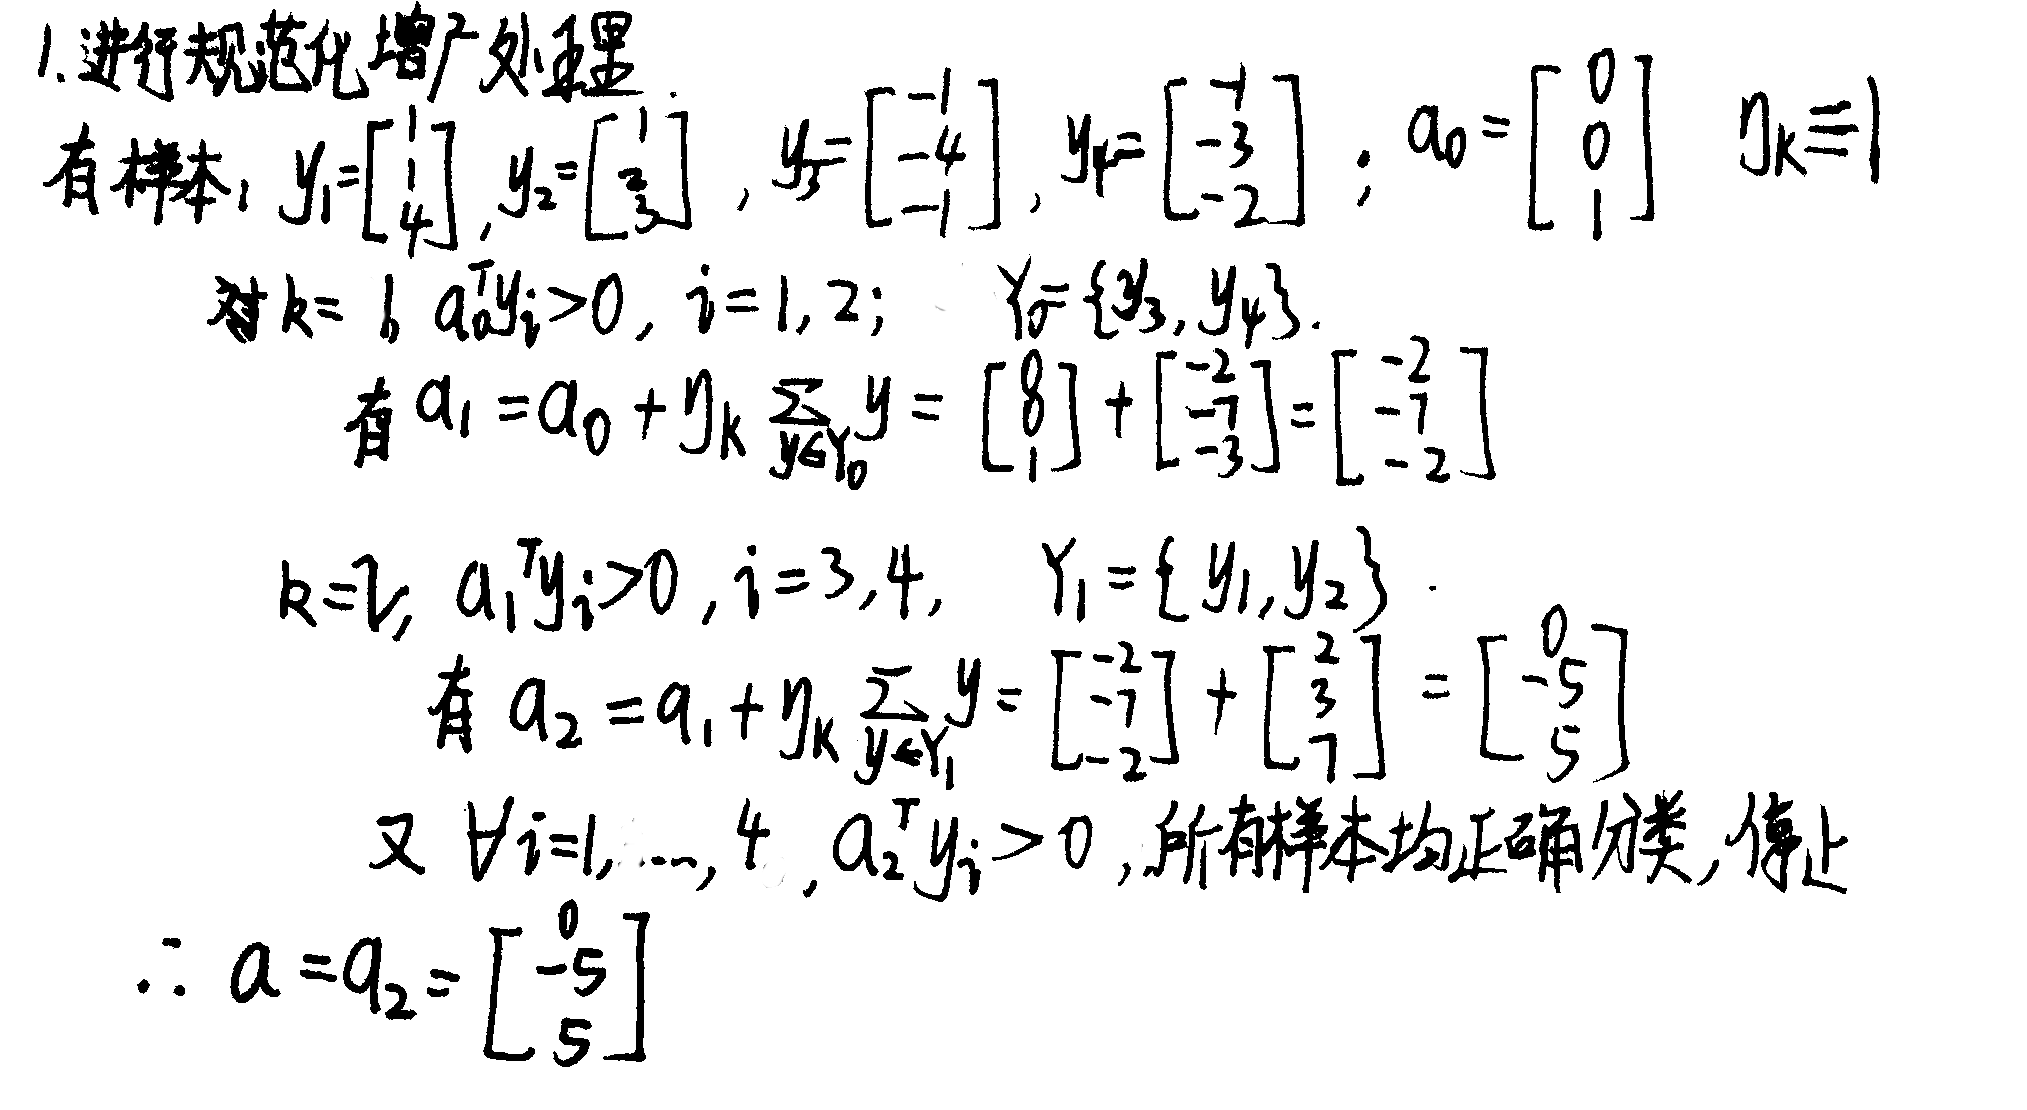 1.进行规范化增广处理.
有样本, y₁=[1 1 4], y₂=[1 2 3], y₃=[-1 -4 -1], y₄=[-1 -3 -2]; a₀=[0 0 1] ηₖ≡1
对k=1, a₀ᵀyᵢ>0, i=1,2; Y₀={y₃,y₄}.
有 a₁=a₀+ηₖ∑_{y∈Y₀} y=[0 0 1]+[-2 -7 -3]=[-2 -7 -2]
k=2, a₁ᵀyᵢ>0, i=3,4, Y₁={y₁,y₂}.
有 a₂=a₁+ηₖ∑_{y∈Y₁} y=[-2 -7 -2]+[2 3 7]=[0 -5 5]
又 ∀i=1,...,4, a₂ᵀyᵢ>0,所有样本均正确分类,停止
∴ a=a₂=[0 -5 5]